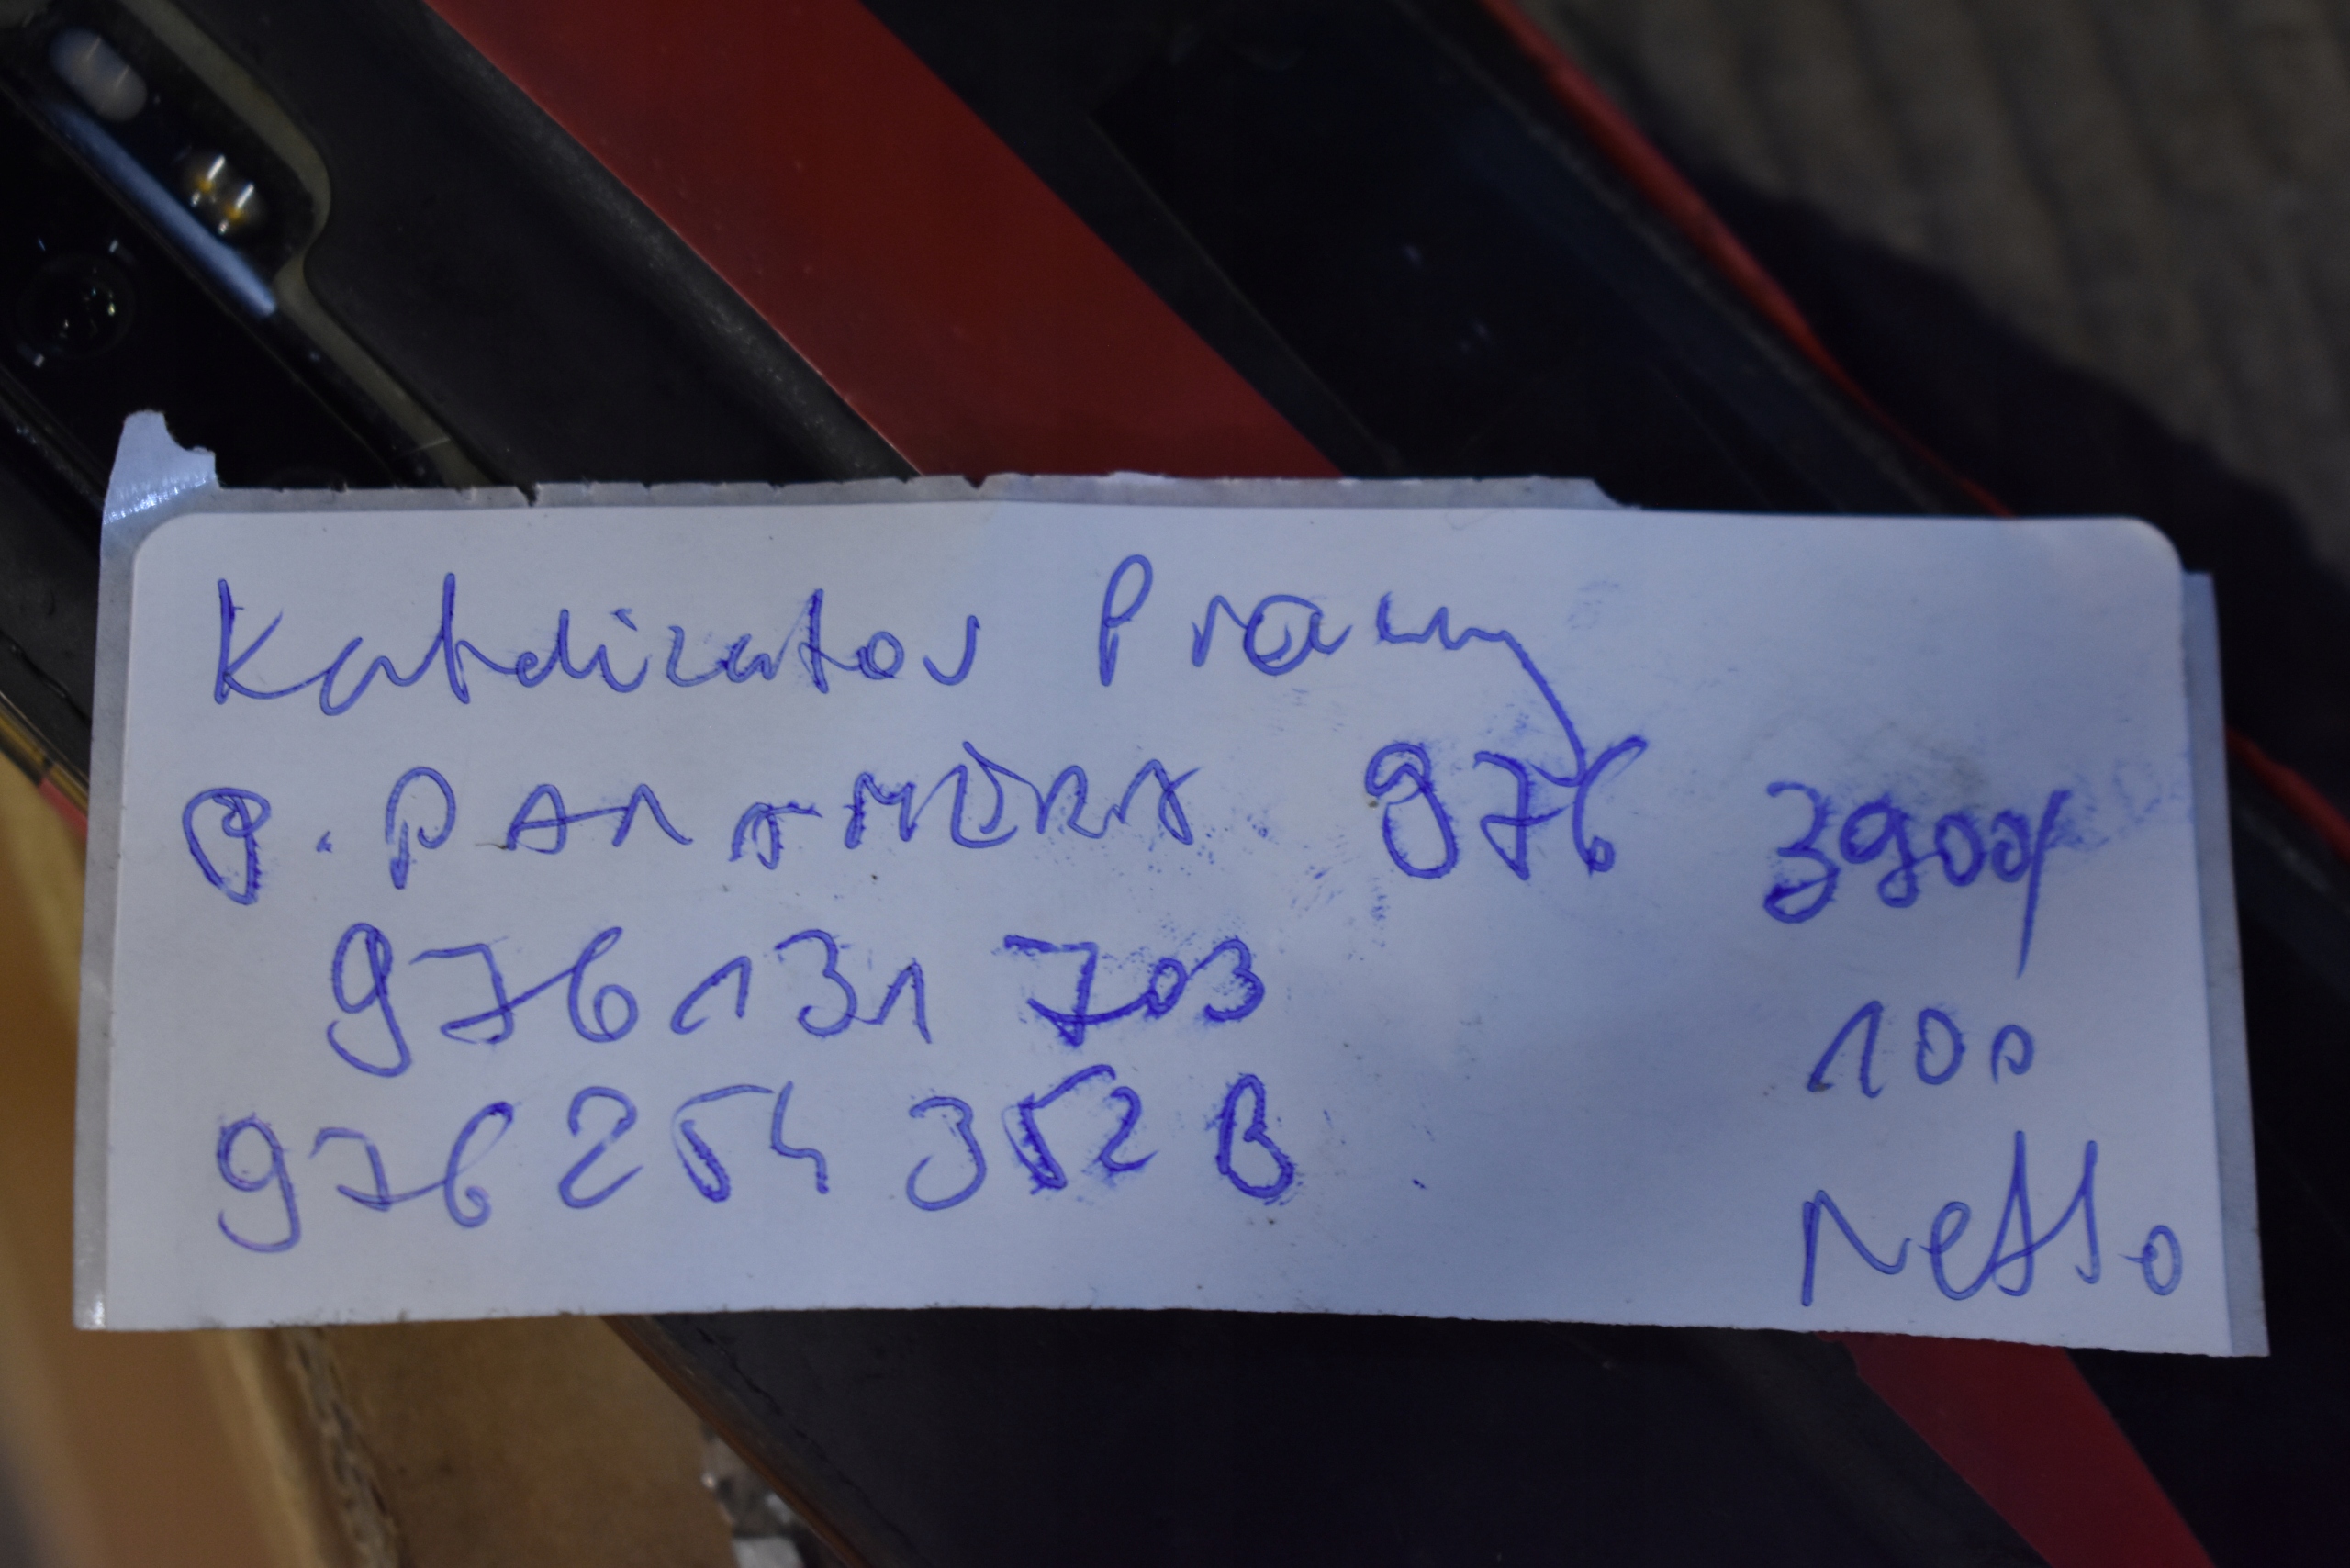 Katalizator Prawy
P. PANAMERA 976
3900
976 131 703
100
976 254 352 B
Netto